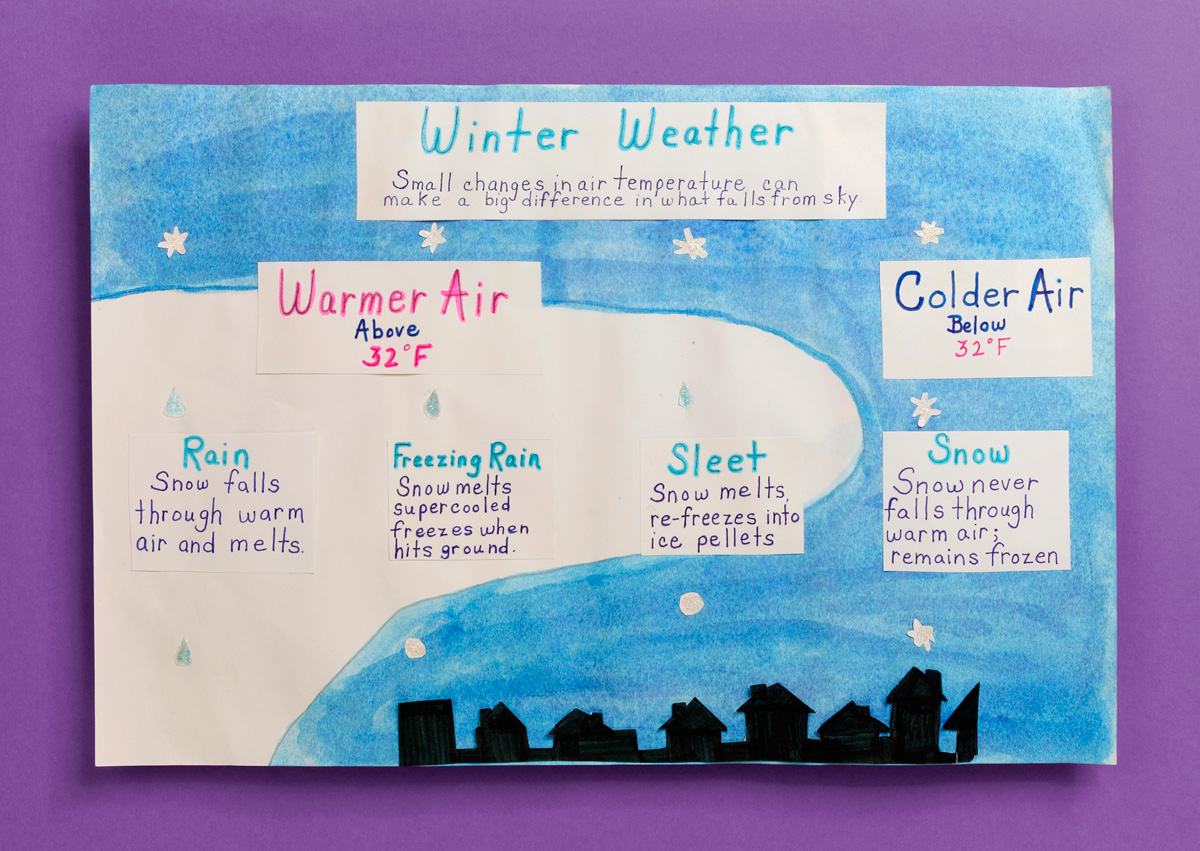 Winter Weather
Small changes in air temperature can
make a big difference in what falls from sky
Warmer Air
Above
32°F
Colder Air
Below
32°F
Rain
Snow falls
through warm
air and melts.
Freezing Rain
Snow melts
supercooled
freezes when
hits ground.
Sleet
Snow melts,
re-freezes into
ice pellets
Snow
Snow never
falls through
warm air;
remains frozen